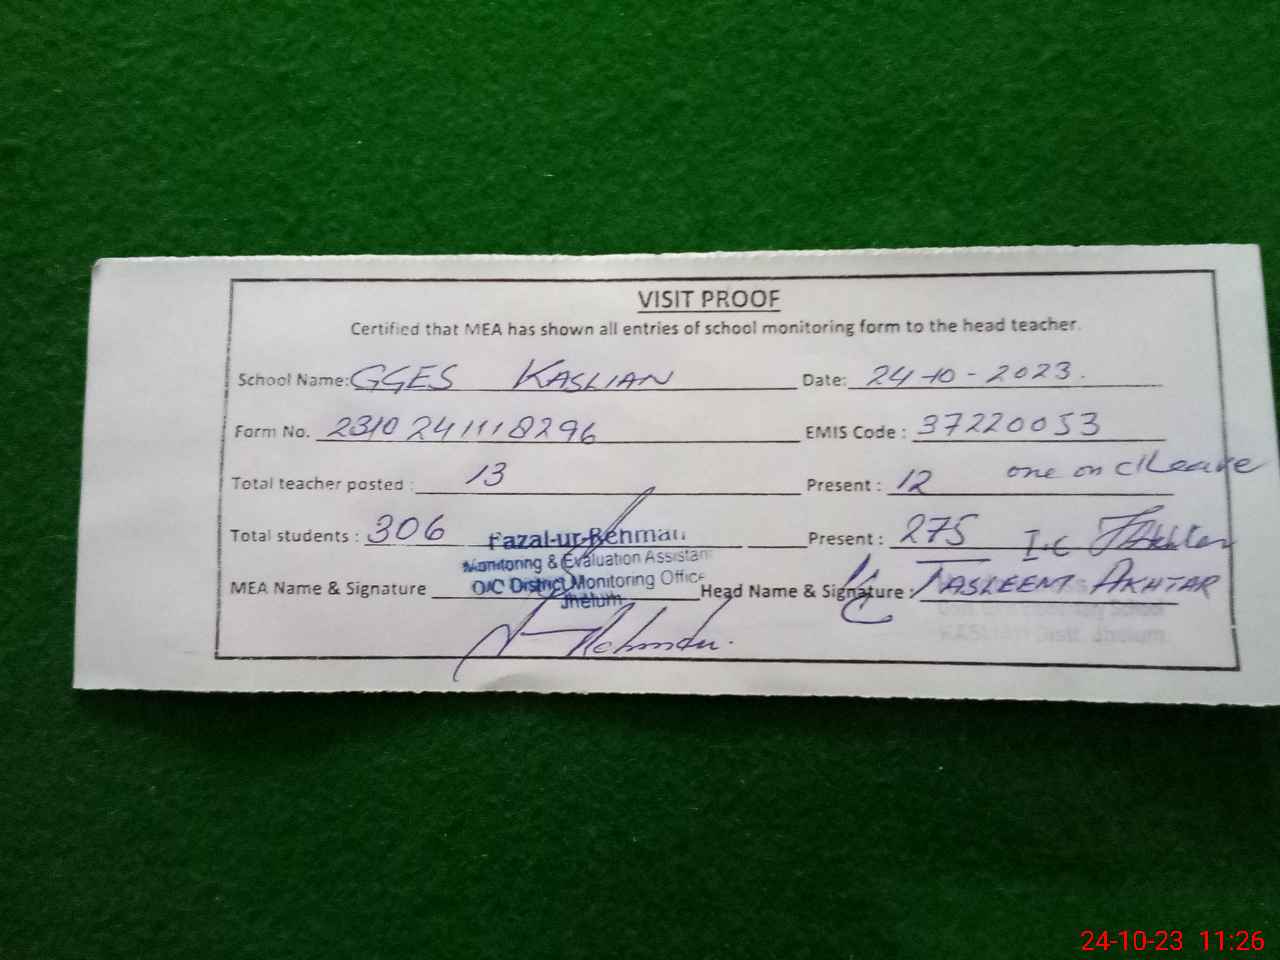 VISIT PROOF
Certified that MEA has shown all entries of school monitoring form to the head teacher.
School Name: GGES KASLIAN Date: 24-10-2023.
Form No. 2310241118296 EMIS Code : 37220053
Total teacher posted : 13 Present : 12 one on c/Leave
Total students : 306 Present : 275 I.C
Fazal-ur-Rehman
Monitoring & Evaluation Assistant
O/C District Monitoring Office
Jhelum
MEA Name & Signature Head Name & Signature : TASLEENT AKHTAR
KASLIAN Distt. Jhelum
24-10-23 11:26